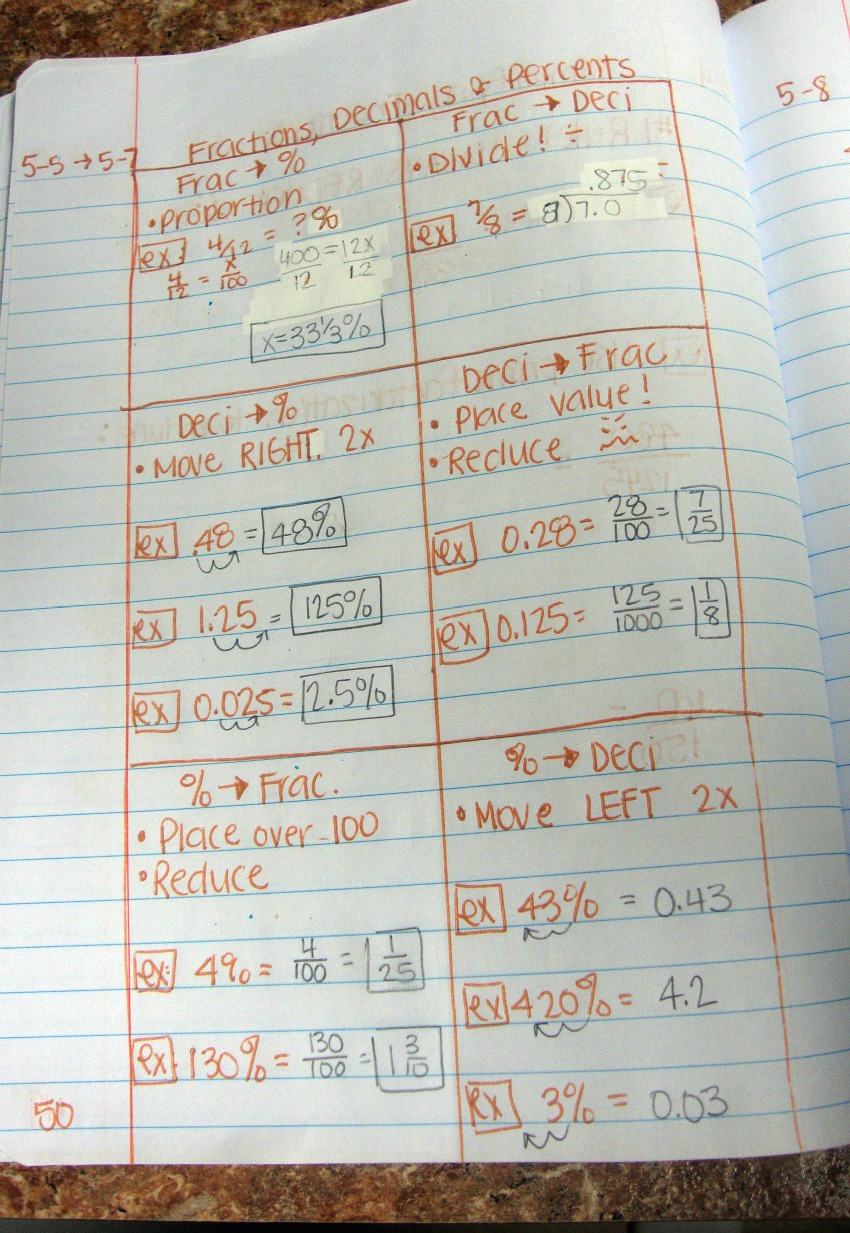 Fractions, Decimals & Percents
5-5 → 5-7
5-8
Frac → %
• proportion
ex: 4/12 = ?%
4/12 = x/100
400/12 = 12x/12
x=33⅓%
Frac → Deci
• Divide! ÷
ex 7/8 = 8)7.0
.875
Deci → %
• Move RIGHT. 2x
ex .48 = 48%
ex 1.25 = 125%
ex 0.025 = 2.5%
Deci → Frac
• Place value!
• Reduce
ex 0.28 = 28/100 = 7/25
ex 0.125 = 125/1000 = 1/8
% → Frac.
• Place over 100
• Reduce
ex: 4% = 4/100 = 1/25
ex 130% = 130/100 = 1 3/10
% → Deci
• Move LEFT 2x
ex 43% = 0.43
ex 420% = 4.2
ex 3% = 0.03
50